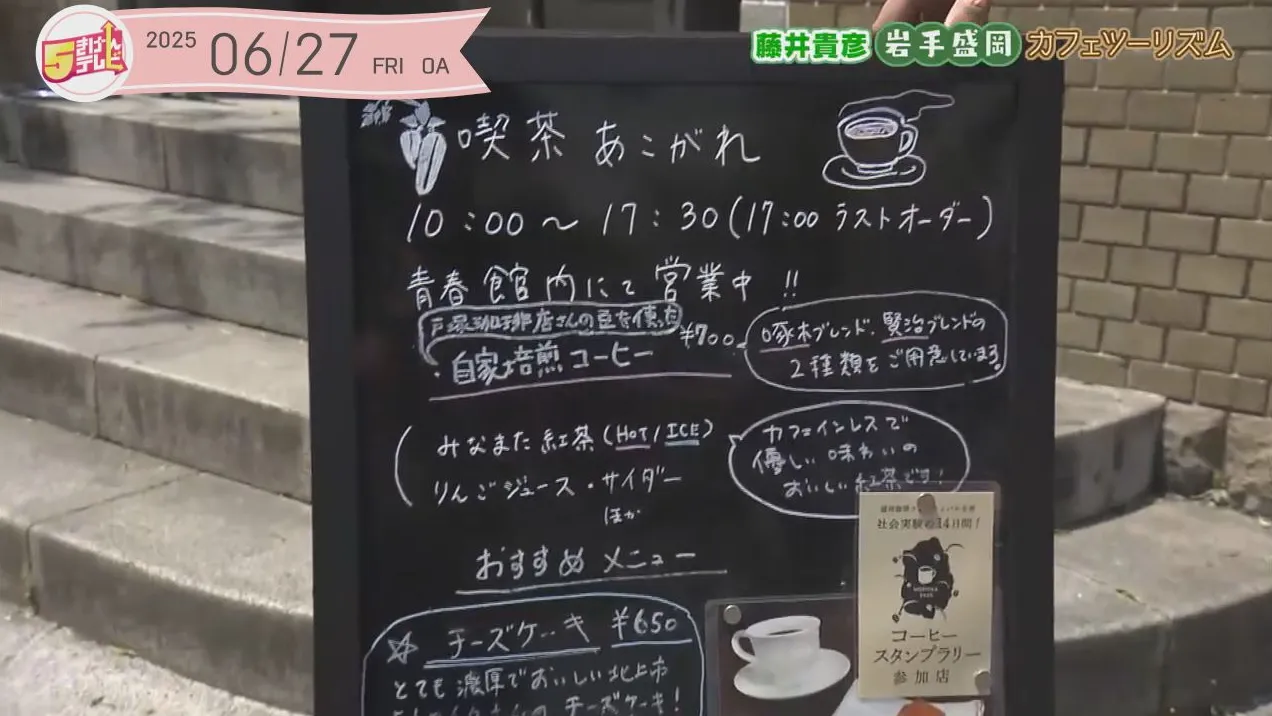 5きげんテレビ
2025 06/27 FRI OA
藤井貴彦 岩手盛岡 カフェツーリズム
喫茶 あこがれ
10:00〜17:30(17:00 ラストオーダー)
青春館内にて営業中!!
戸塚珈琲店さんの豆を使った
・自家焙煎コーヒー ¥700
啄木ブレンド、賢治ブレンドの
2種類をご用意しています。
みなまた紅茶(HOT/ICE)
りんごジュース・サイダー
ほか
カフェインレスで
優しい味わいの
おいしい紅茶です!
おすすめメニュー
☆ チーズケーキ ¥650
とても濃厚でおいしい北上市
チーズケーキ!
社会実験の14日間!
コーヒー
スタンプラリー
参加店